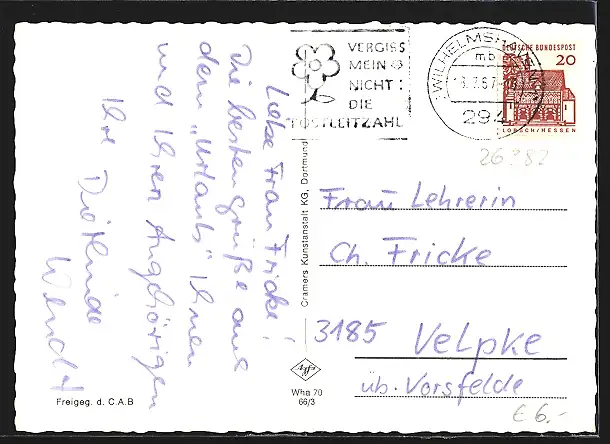 Liebe Frau Fricke!
Die besten Grüße aus
dem "Urlaub" Ihnen
und Ihren Angehörigen
Ihre Dietlinde
Wendt
Freigeg. d. C.A.B.
Cramers Kunstanstalt KG, Dortmund
Agfa
Wha 70
66/3
VERGISS
MEIN
NICHT :
DIE
POSTLEITZAHL
WILHELMSHAVEN
mb
.7.67
294
DEUTSCHE BUNDESPOST
20
LORSCH/HESSEN
26382
Frau Lehrerin
Ch. Fricke
3185 Velpke
üb. Vorsfelde
€ 6.-